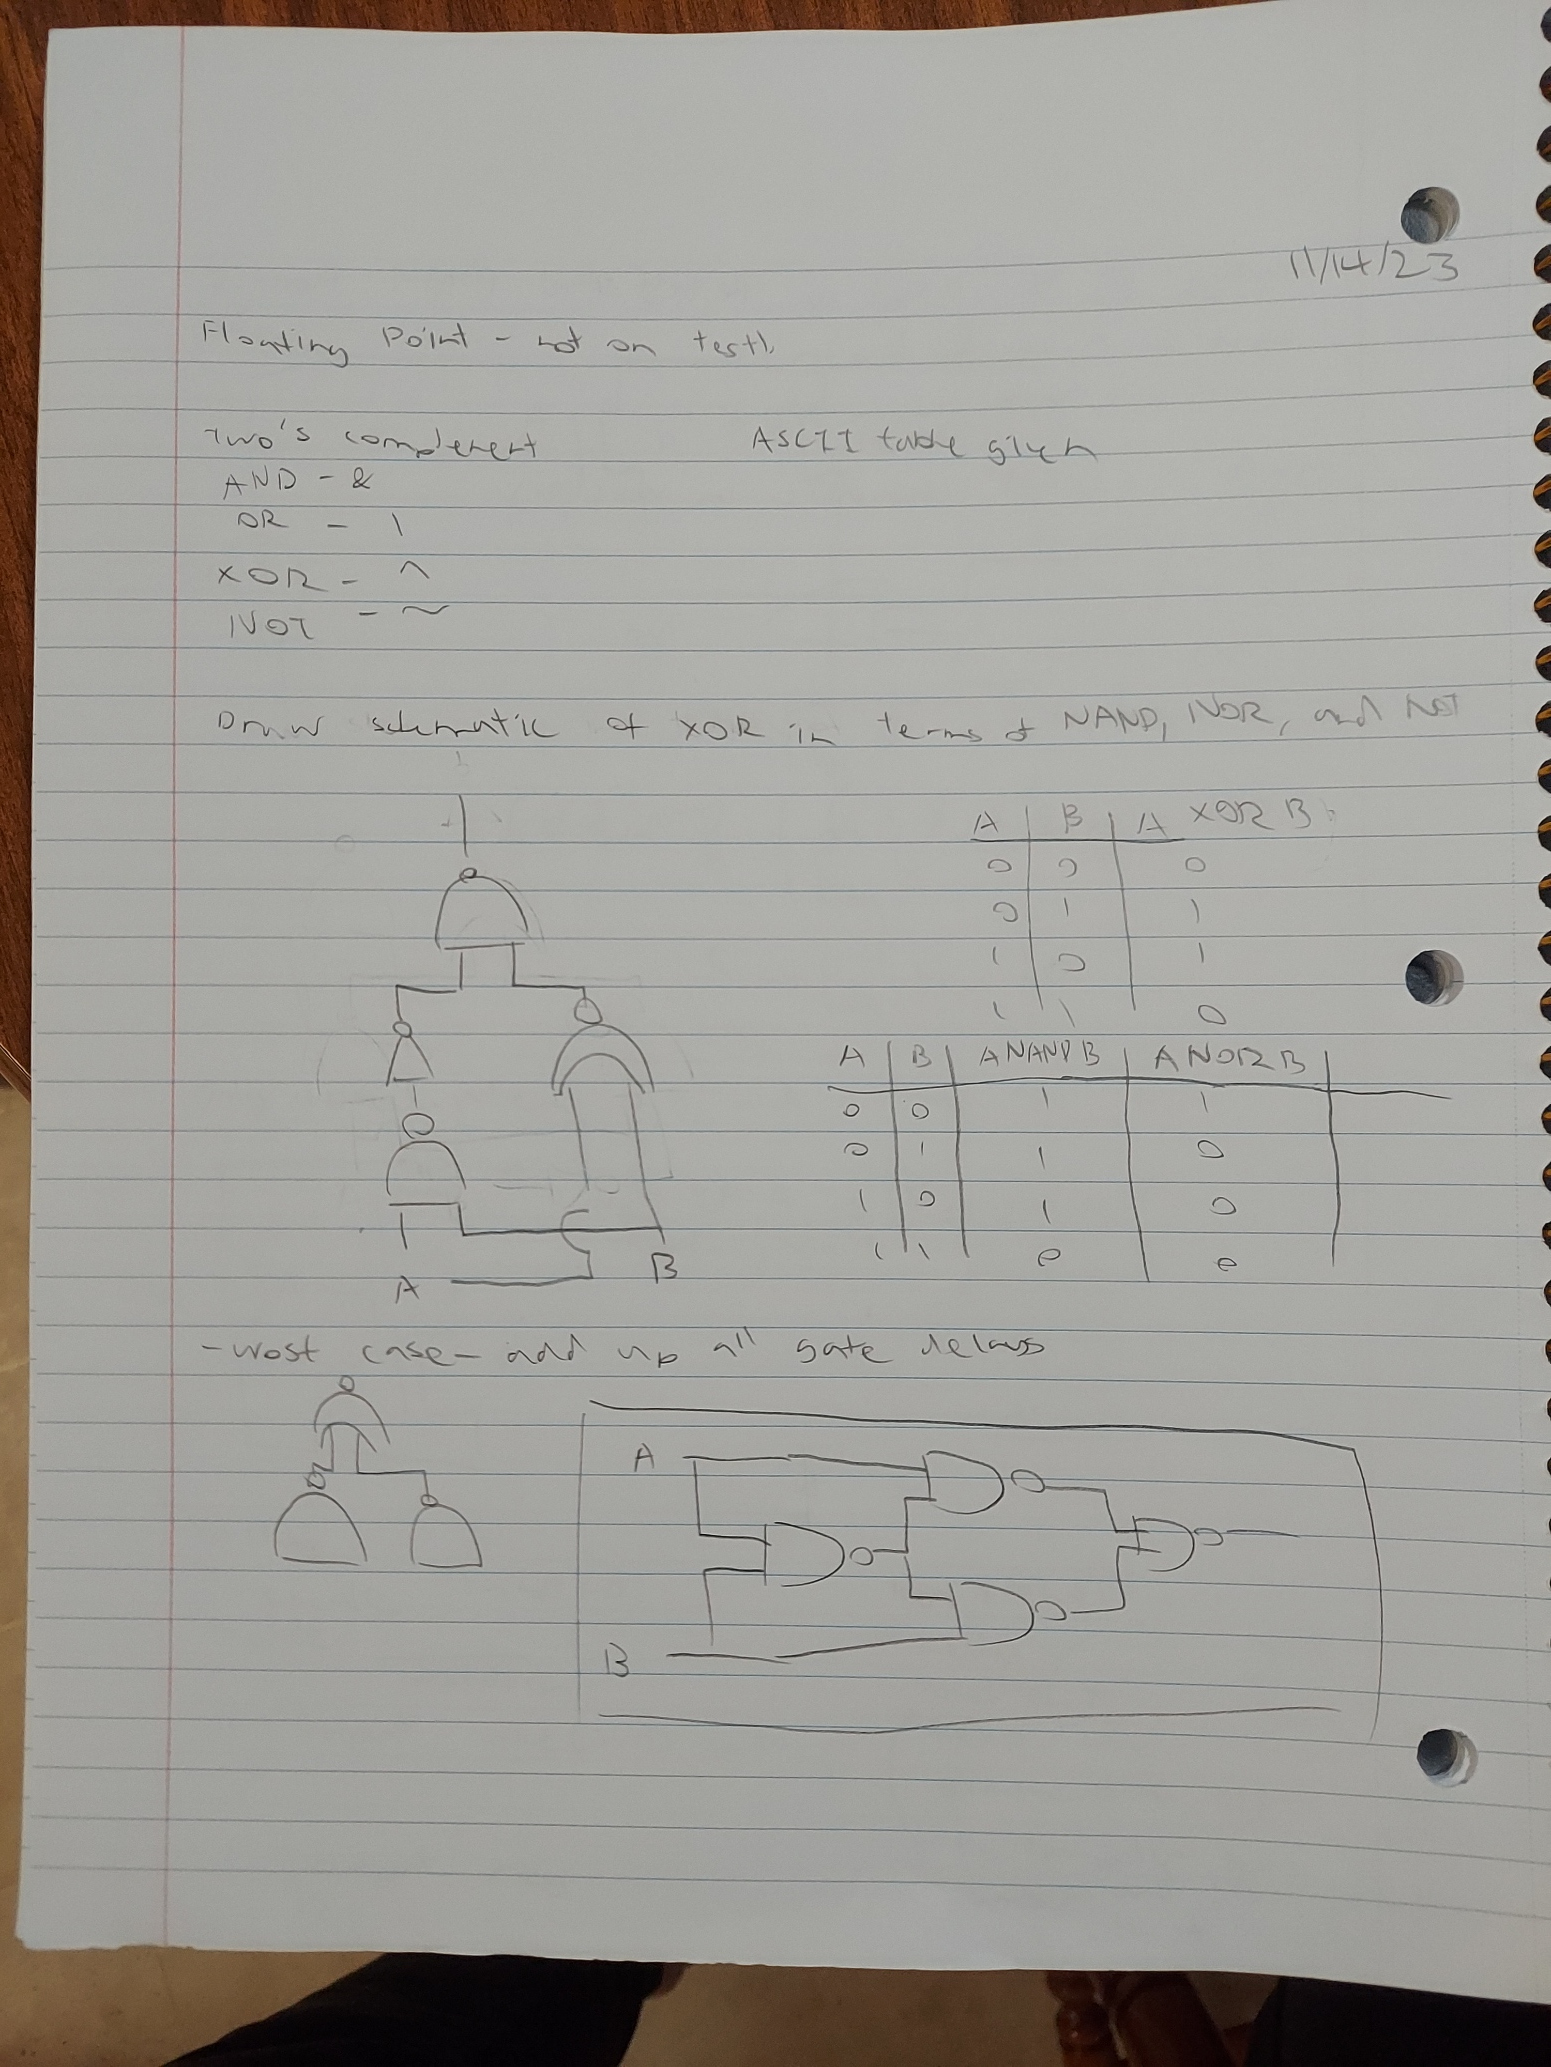 11/14/23
Floating Point - not on test1
Two's complement
ASCII table given
AND - &
OR - |
XOR - ^
NOT - ~
Draw schematic of XOR in terms of NAND, NOR, and NOT
A | B | A XOR B
0 0 0
0 1 1
1 0 1
1 1 0
A | B | A NAND B | A NOR B |
0 0 1 1
0 1 1 0
1 0 1 0
1 1 0 0
A B
- wost case - add up all gate delays
A
B